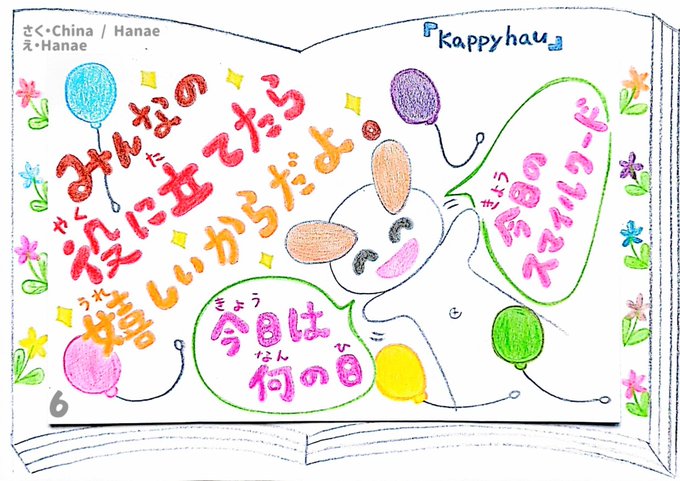 さく・China / Hanae
え・Hanae
『Kappyhau』
みんなの
役に立てたら
やく
た
嬉しいからだよ。
うれ
今日の
きょう
スマイルワード
今日は
きょう
何の日
なん
ひ
6